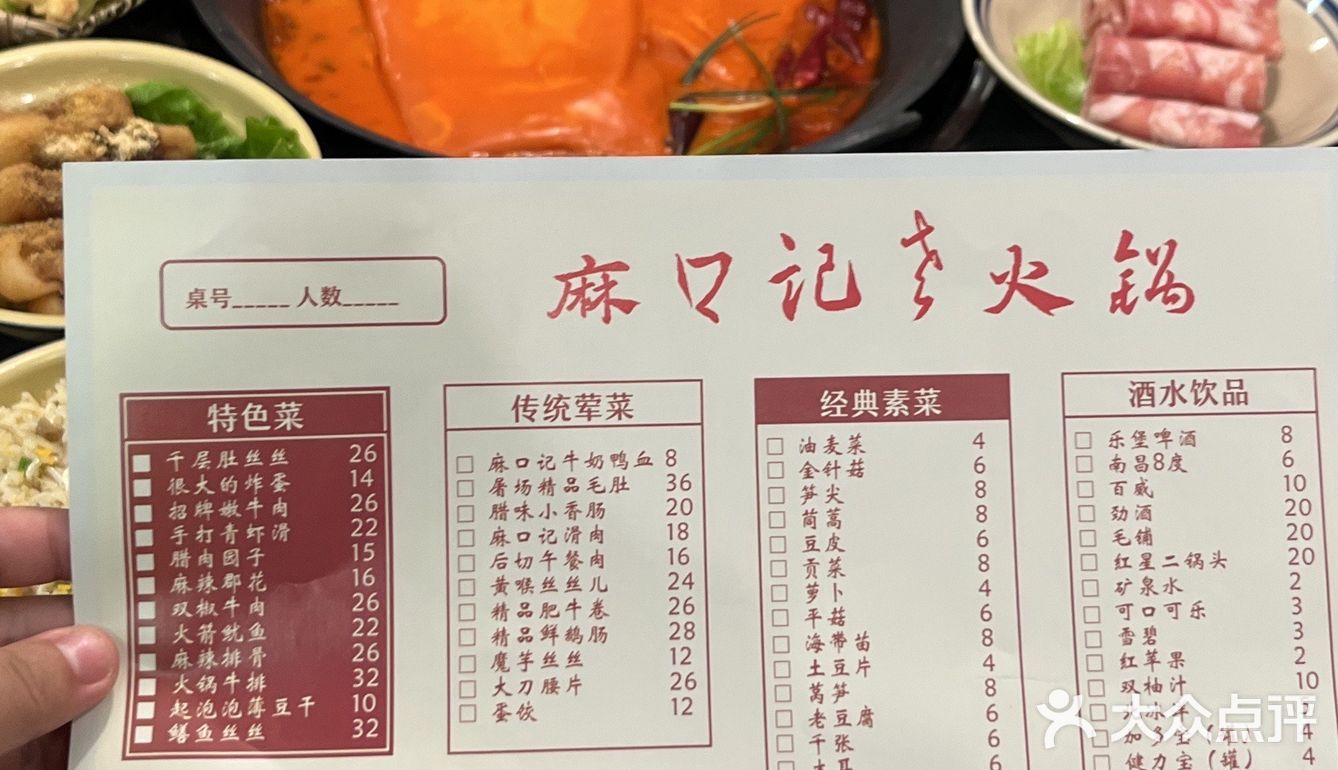 麻口记老火锅
桌号_____ 人数_____
特色菜
千层肚丝丝 26
很大的炸蛋 14
招牌嫩牛肉 26
手打青虾滑 22
腊肉园子 15
麻辣郡花 16
双椒牛肉 26
火箭鱿鱼 22
麻辣排骨 26
火锅牛排 32
起泡泡薄豆干 10
鳝鱼丝丝 32
传统荤菜
麻口记牛奶鸭血 8
屠场精品毛肚 36
腊味小香肠 20
麻口记滑肉 18
后切午餐肉 16
黄喉丝丝儿 24
精品肥牛卷 26
精品鲜鹅肠 28
魔芋丝丝 12
大刀腰片 26
蛋饺 12
经典素菜
油麦菜 4
金针菇 6
笋尖 8
茼蒿 8
豆皮 6
贡菜 8
萝卜 4
平菇 6
海带苗 8
土豆片 4
莴笋 8
老豆腐 6
千张 6
木耳 6
酒水饮品
乐堡啤酒 8
南昌8度 6
百威 10
劲酒 20
毛铺 20
红星二锅头 20
矿泉水 2
可口可乐 3
雪碧 3
红苹果 2
双柚汁 10
加多宝(罐) 4
健力宝(罐) 4
大众点评